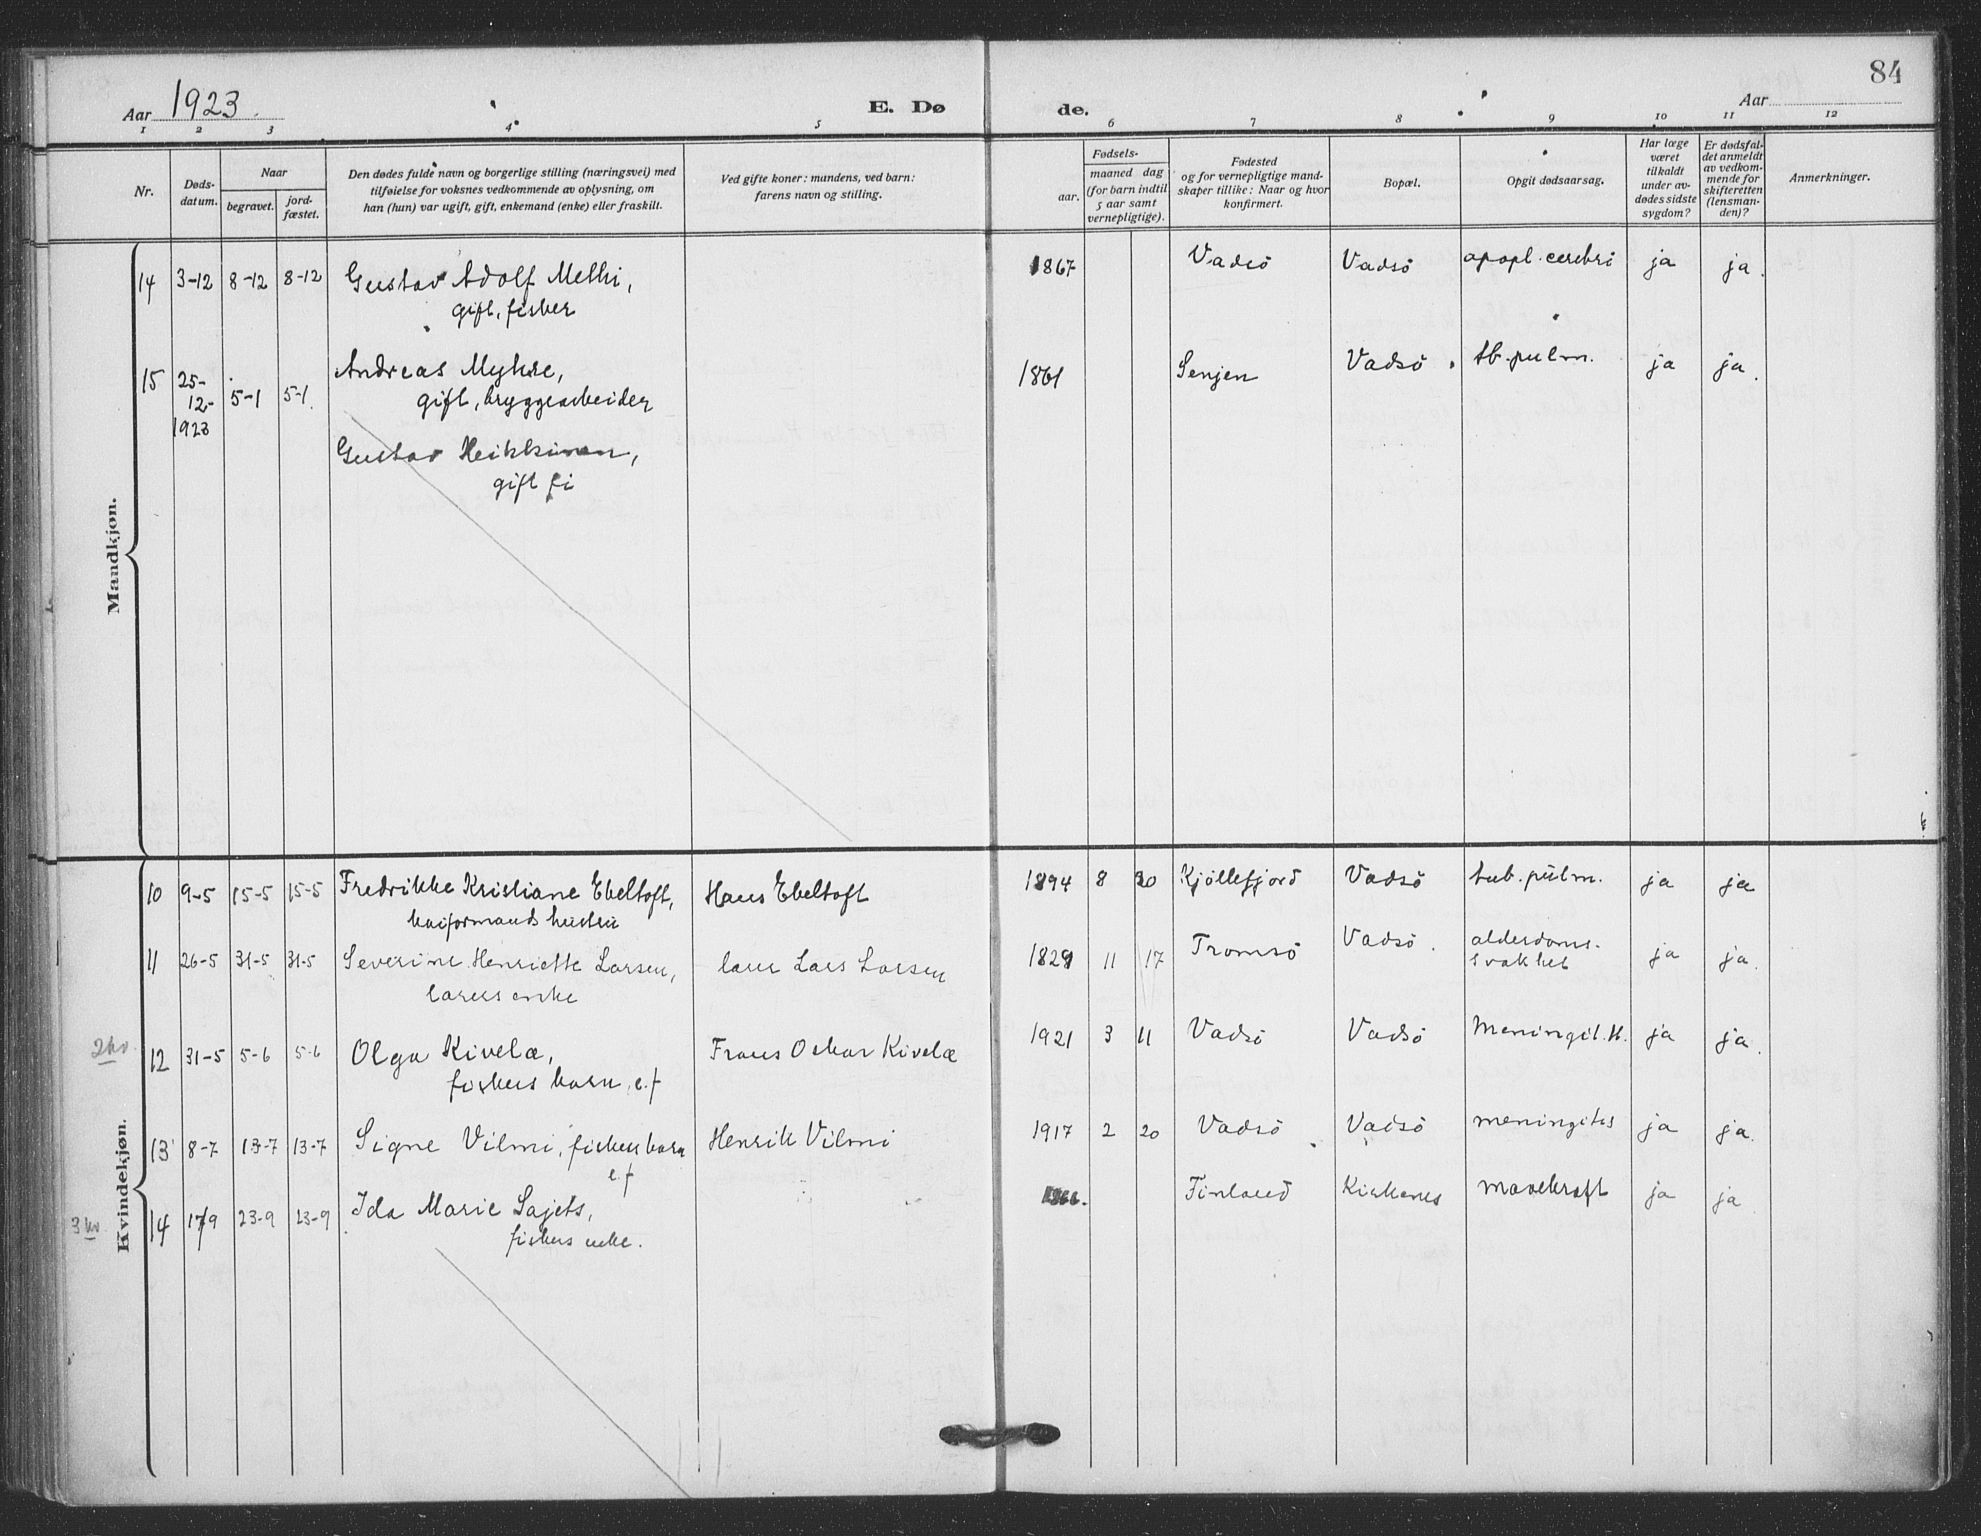 84
Aar 1923.
E. Døde.
Aar
1 2 3 4 5 6 7 8 9 10 11 12
Nr.
Dødsdatum.
Naar
begravet.
jordfæstet.
Den dødes fulde navn og borgerlige stilling (næringsvei) med
tilføielse for voksnes vedkommende av oplysning, om
han (hun) var ugift, gift, enkemand (enke) eller fraskilt.
Ved gifte koner: mandens, ved barn:
farens navn og stilling.
Fødsels-
aar.
maaned dag
(for barn indtil
5 aar samt
vernepligtige).
Fødested
og for vernepligtige mand-
skaper tillike: Naar og hvor
konfirmert.
Bopæl.
Opgit dødsaarsag.
Har læge
været
tilkaldt
under av-
dødes sidste
sygdom?
Er dødsfal-
det anmeldt
av vedkom-
mende for
skifteretten
(lensman-
den)?
Anmerkninger.
Mandkjøn.
14 3-12 8-12 8-12 Gustav Adolf Methi, 1867 Vadsö Vadsö apopl. cerebri ja ja.
gift, fisker
15 25-12-1923 5-1 5-1 Andreas Myhre, 1861 Senjen Vadsö tb. pulm. ja ja.
gift, bryggearbeider
Gustav Heikkinen,
gift fi
Kvindekjøn.
10 9-5 15-5 15-5 Fredrikke Kristiane Ebeltoft, Hans Ebeltoft 1894 8 30 Kjöllefjord Vadsö tub. pulm. ja ja
kaiformands hustru
11 26-5 31-5 31-5 Severine Henriette Larsen, Lars Larsen 11 17 Tromsö Vadsö. alderdoms-
svakhet ja ja.
enke
2 kv.
12 31-5 5-6 5-6 Olga Kivelæ, Frans Oskar Kivelæ 1921 3 11 Vadsö Vadsö Meningit. ja ja.
fiskers barn, e.f
13 8-7 13-7 13-7 Signe Vilmi, fiskers barn Henrik Vilmi 1917 2 20 Vadsö Vadsö meningitis ja ja.
e.f
3 kv.
14 17/9 23-9 23-9 Ida Marie Sajets, 1866. Finland Kirkenes mavekræft ja ja
fiskers enke.